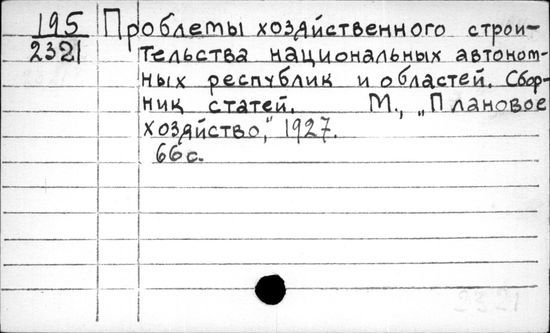 195
2321
Проблемы хозяйственного строи-
тельства национальных автоном-
ных республик и областей. Сбор-
ник статей. М., „Плановое
хозяйство," 1927.
66с.
2321